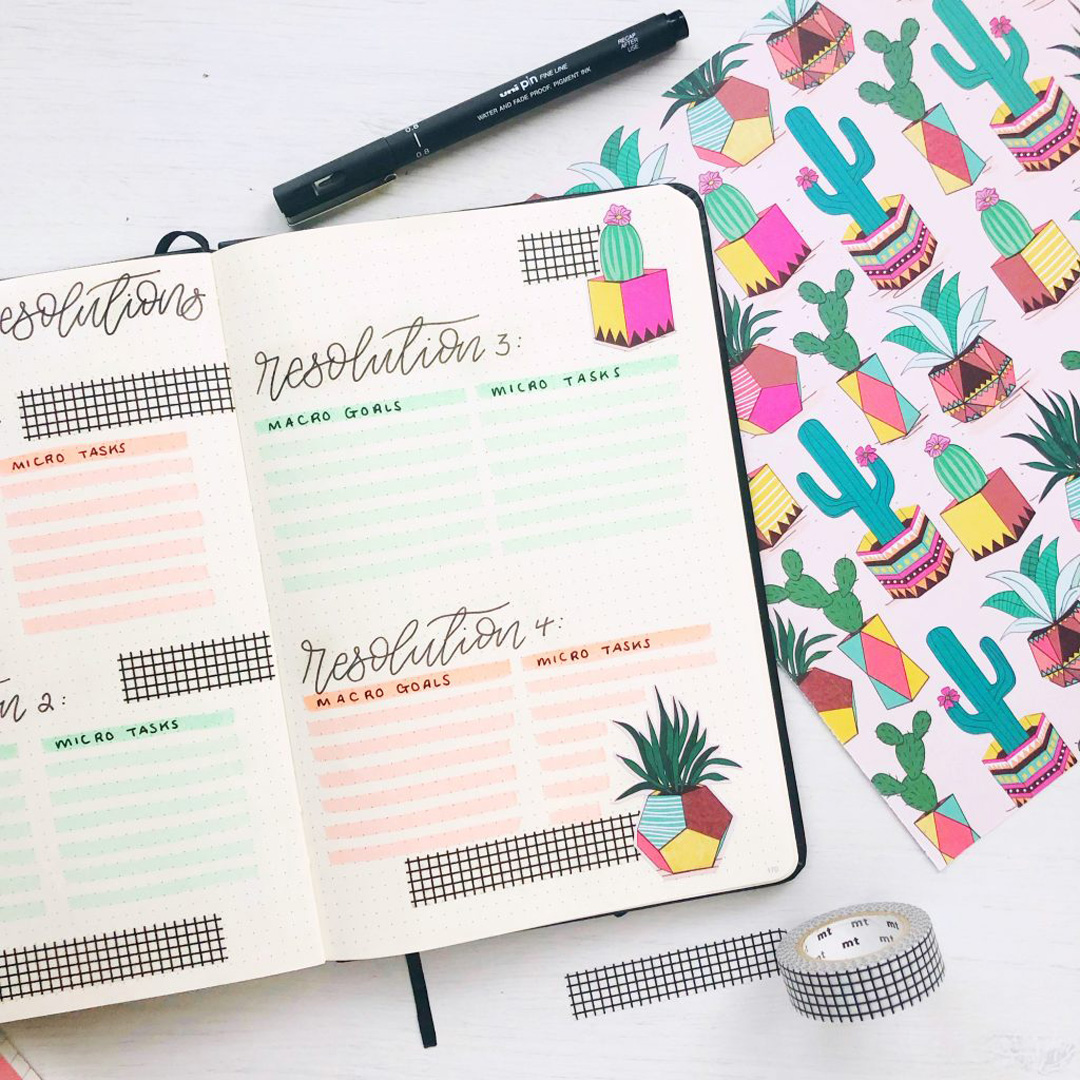 RECAP
AFTER
USE
uni pin FINE LINE
WATER AND FADE PROOF. PIGMENT INK
0.8
0.8
esolutions
MICRO TASKS
n 2:
MICRO TASKS
resolution 3:
MACRO GOALS MICRO TASKS
resolution 4:
MACRO GOALS MICRO TASKS
170
mt mt mt